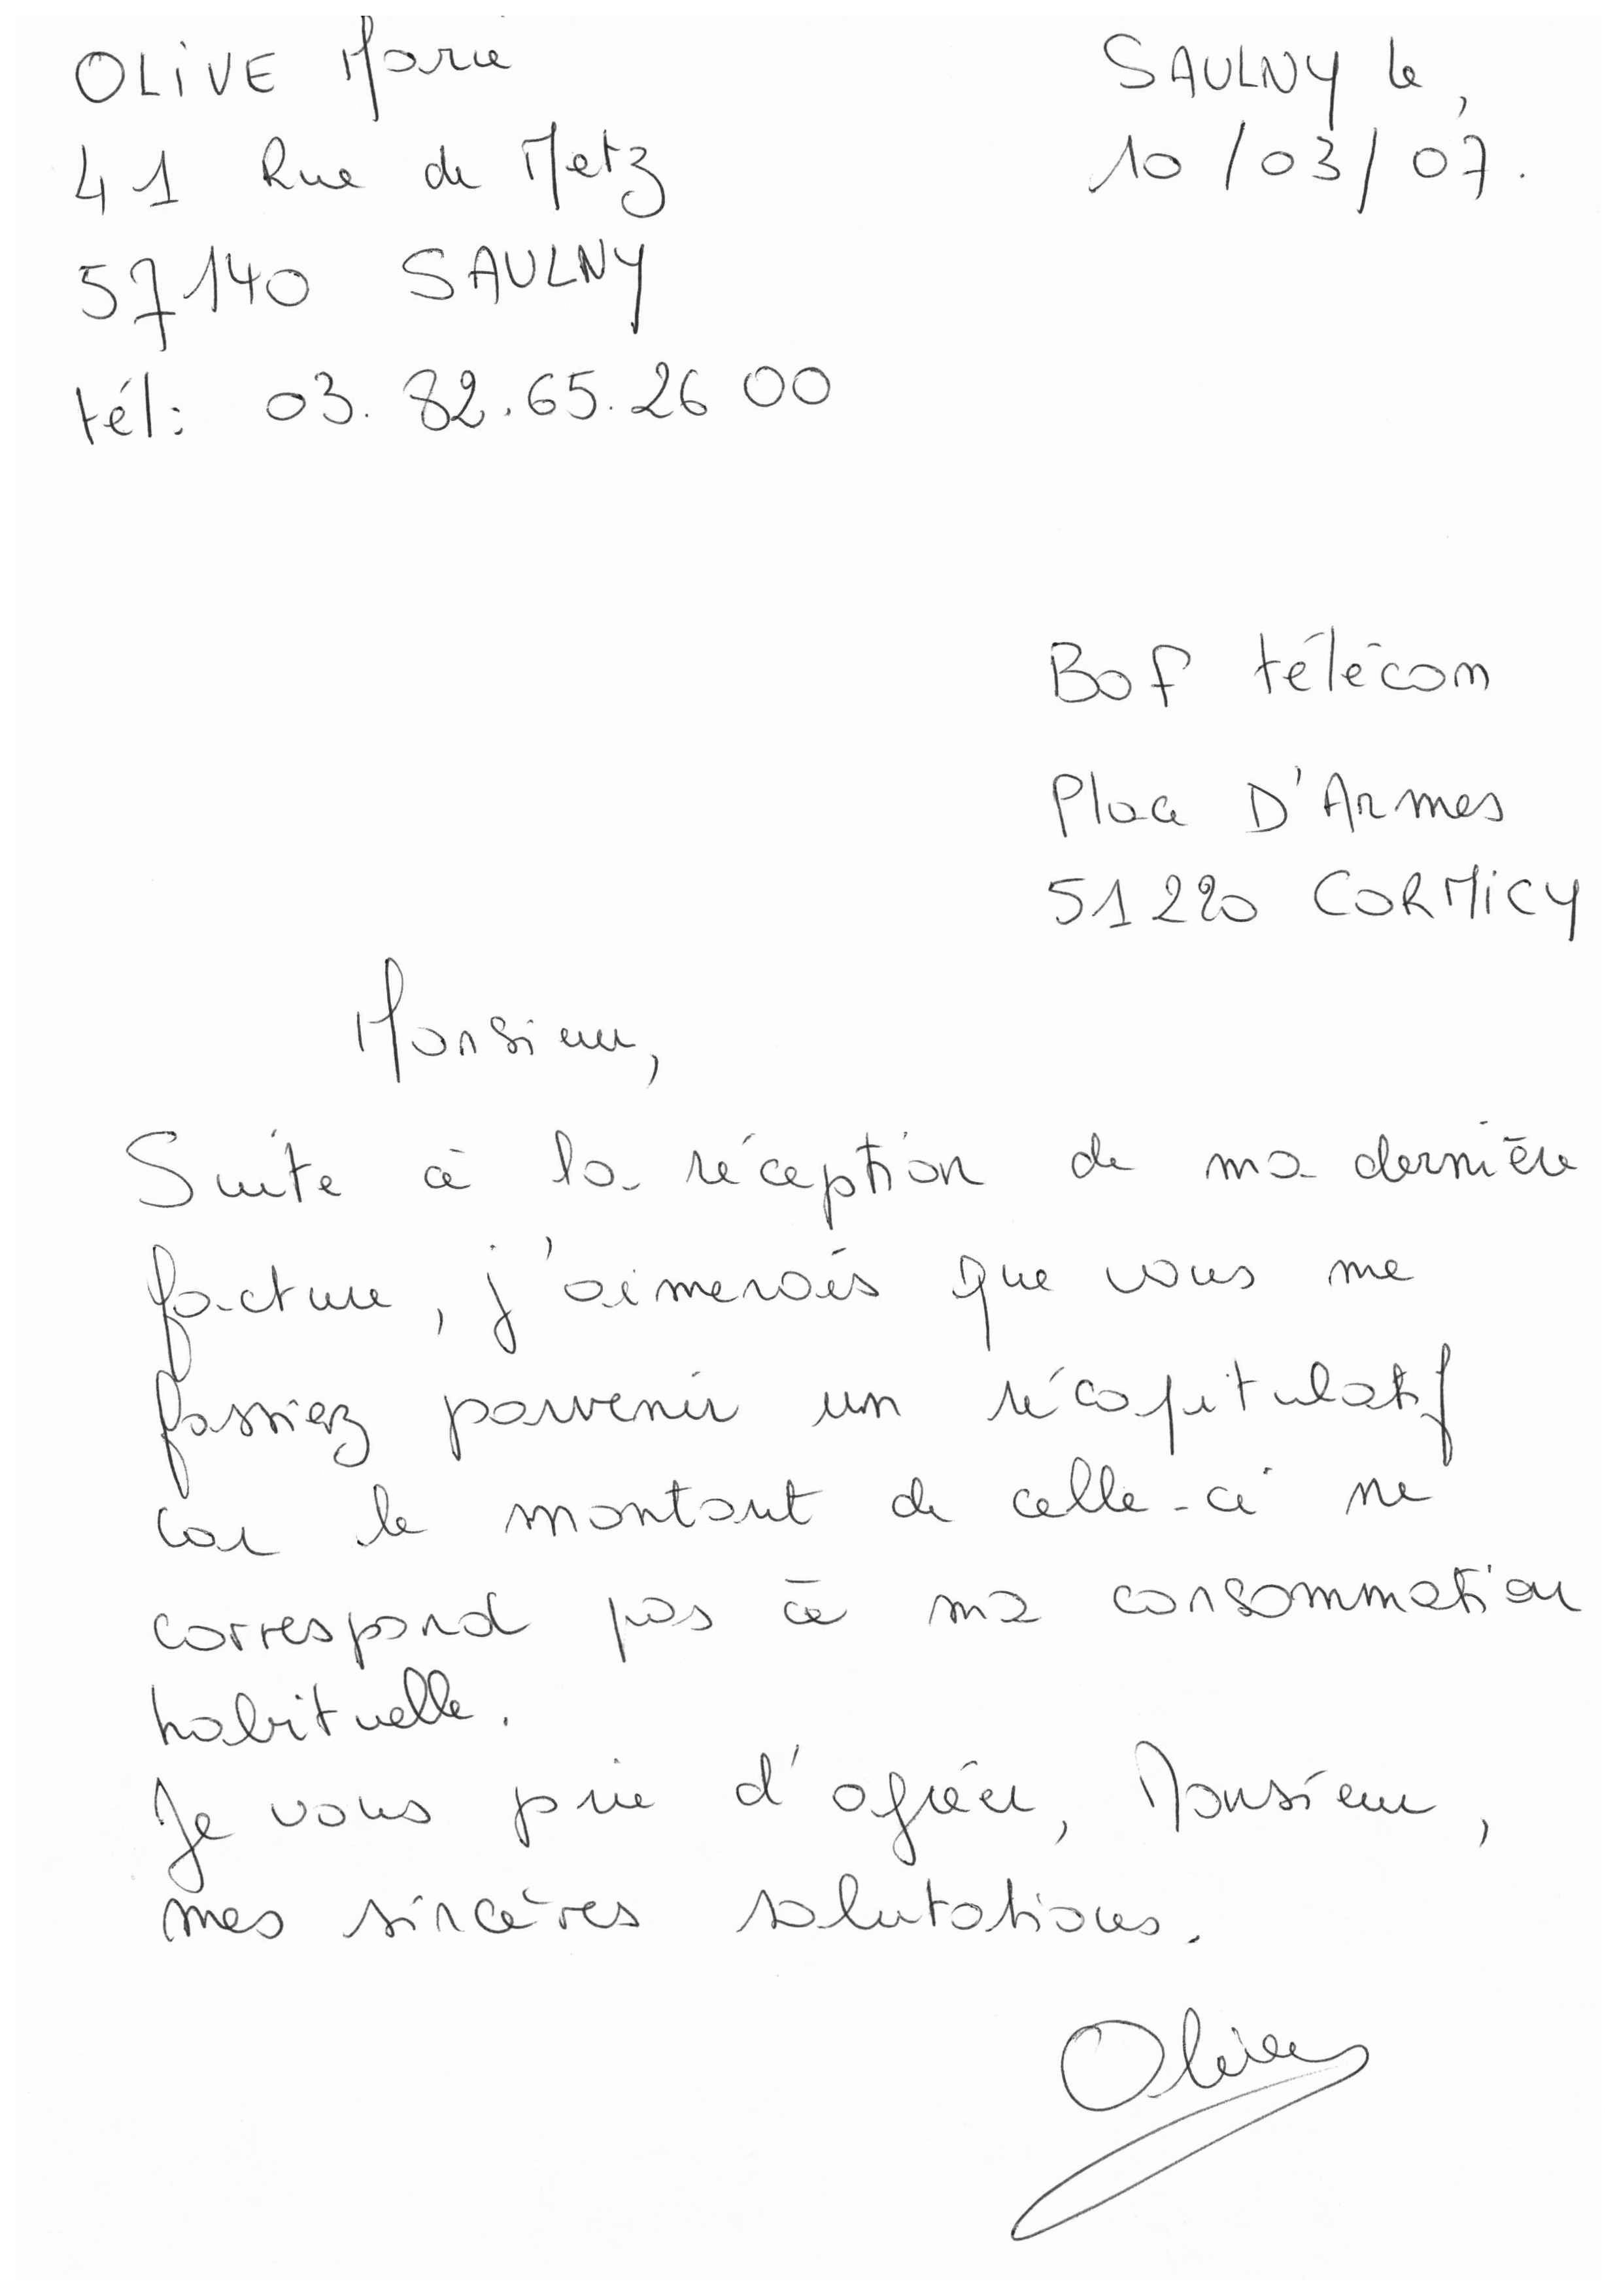 OLIVE Marie
41 Rue de Metz
57140 SAULNY
tél: 03. 82.65.26 00
SAULNY le,
10/03/07.
Bof télécom
Place D'Armes
51220 CORMICY
Monsieur,
Suite à la réception de ma dernière
facture, j'aimerais que vous me
fassiez parvenir un récapitulatif
car le montant de celle-ci ne
correspond pas à ma consommation
habituelle.
Je vous prie d'agréer, Monsieur,
mes sincères salutations.